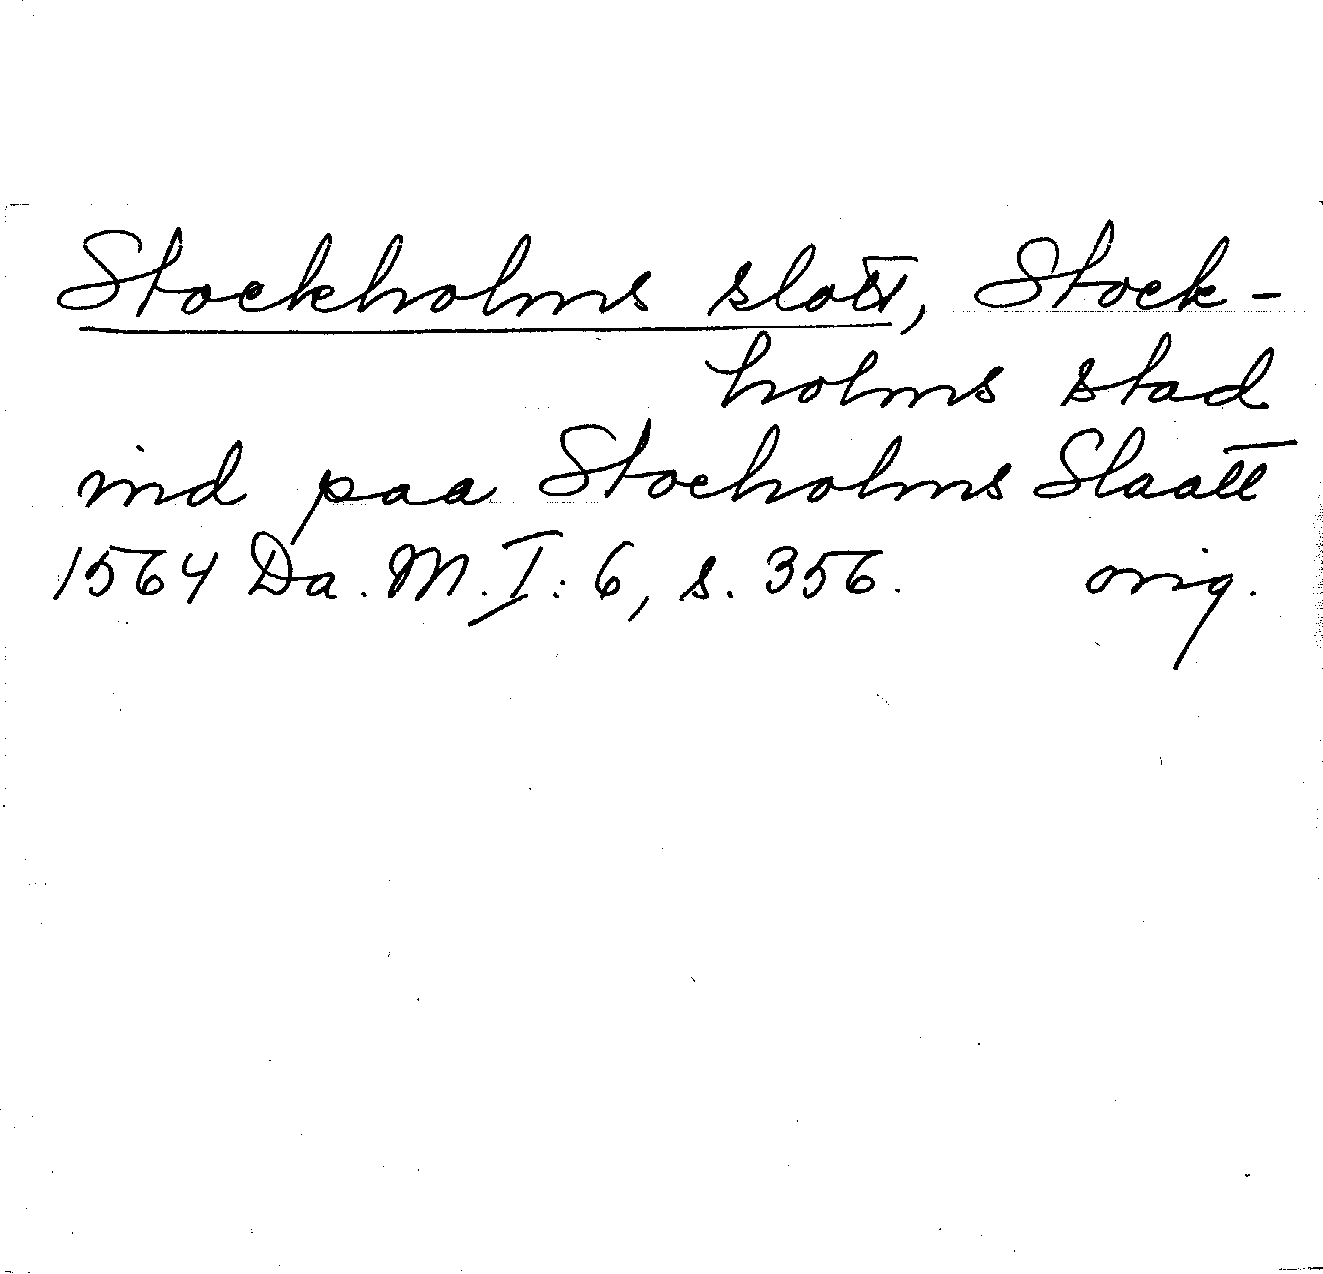 Stockholms slott, Stock-
holms stad
ind paa Stocholms Slaatt
1564 Da. M. I: 6, s. 356. orig.